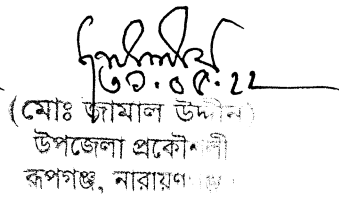 ৩১.০৫.২২
(মোঃ জামাল উদ্দীন)
উপজেলা প্রকৌশলী
রূপগঞ্জ, নারায়ণগঞ্জ